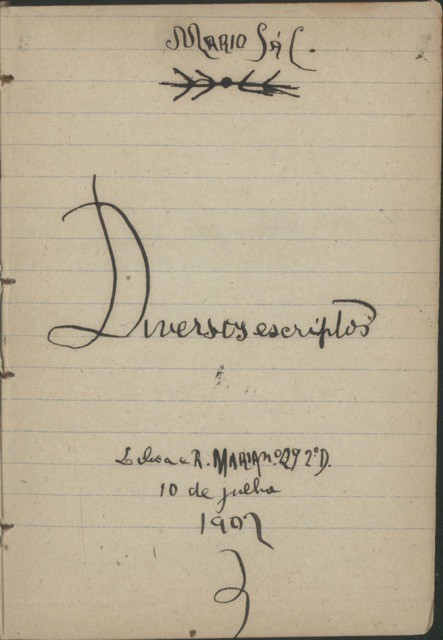 MARIO SÁ C.
Diversos escriptos
Lisboa R. MARIA nº 29 2º D.
10 de julho
1907